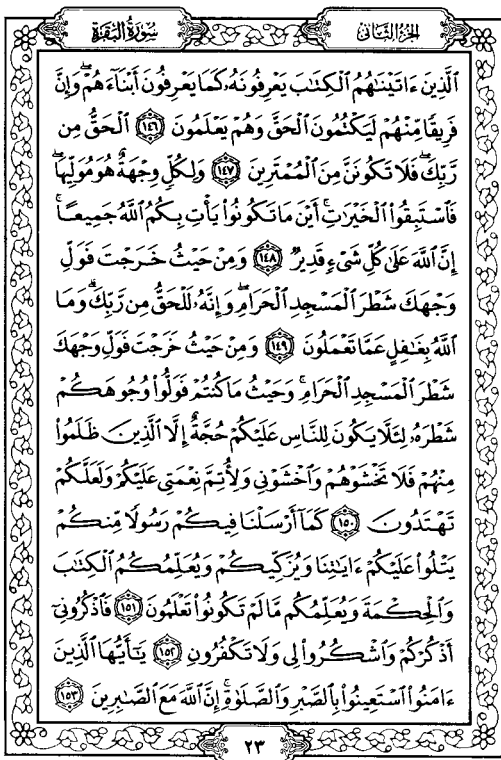 سُورَةُ البَقَرَةِ
الجُزْءُ الثَّانِي
ٱلَّذِينَ ءَاتَيْنَٰهُمُ ٱلْكِتَٰبَ يَعْرِفُونَهُۥ كَمَا يَعْرِفُونَ أَبْنَآءَهُمْ ۖ وَإِنَّ
فَرِيقًا مِّنْهُمْ لَيَكْتُمُونَ ٱلْحَقَّ وَهُمْ يَعْلَمُونَ ١٤٦ ٱلْحَقُّ مِن
رَّبِّكَ ۖ فَلَا تَكُونَنَّ مِنَ ٱلْمُمْتَرِينَ ١٤٧ وَلِكُلٍّ وِجْهَةٌ هُوَ مُوَلِّيهَا ۖ
فَٱسْتَبِقُوا۟ ٱلْخَيْرَٰتِ ۚ أَيْنَ مَا تَكُونُوا۟ يَأْتِ بِكُمُ ٱللَّهُ جَمِيعًا ۚ
إِنَّ ٱللَّهَ عَلَىٰ كُلِّ شَىْءٍ قَدِيرٌ ١٤٨ وَمِنْ حَيْثُ خَرَجْتَ فَوَلِّ
وَجْهَكَ شَطْرَ ٱلْمَسْجِدِ ٱلْحَرَامِ ۖ وَإِنَّهُۥ لَلْحَقُّ مِن رَّبِّكَ ۗ وَمَا
ٱللَّهُ بِغَٰفِلٍ عَمَّا تَعْمَلُونَ ١٤٩ وَمِنْ حَيْثُ خَرَجْتَ فَوَلِّ وَجْهَكَ
شَطْرَ ٱلْمَسْجِدِ ٱلْحَرَامِ ۚ وَحَيْثُ مَا كُنتُمْ فَوَلُّوا۟ وُجُوهَكُمْ
شَطْرَهُۥ لِئَلَّا يَكُونَ لِلنَّاسِ عَلَيْكُمْ حُجَّةٌ إِلَّا ٱلَّذِينَ ظَلَمُوا۟
مِنْهُمْ فَلَا تَخْشَوْهُمْ وَٱخْشَوْنِى وَلِأُتِمَّ نِعْمَتِى عَلَيْكُمْ وَلَعَلَّكُمْ
تَهْتَدُونَ ١٥٠ كَمَآ أَرْسَلْنَا فِيكُمْ رَسُولًا مِّنكُمْ
يَتْلُوا۟ عَلَيْكُمْ ءَايَٰتِنَا وَيُزَكِّيكُمْ وَيُعَلِّمُكُمُ ٱلْكِتَٰبَ
وَٱلْحِكْمَةَ وَيُعَلِّمُكُم مَّا لَمْ تَكُونُوا۟ تَعْلَمُونَ ١٥١ فَٱذْكُرُونِىٓ
أَذْكُرْكُمْ وَٱشْكُرُوا۟ لِى وَلَا تَكْفُرُونِ ١٥٢ يَٰٓأَيُّهَا ٱلَّذِينَ
ءَامَنُوا۟ ٱسْتَعِينُوا۟ بِٱلصَّبْرِ وَٱلصَّلَوٰةِ ۚ إِنَّ ٱللَّهَ مَعَ ٱلصَّٰبِرِينَ ١٥٣
٢٣